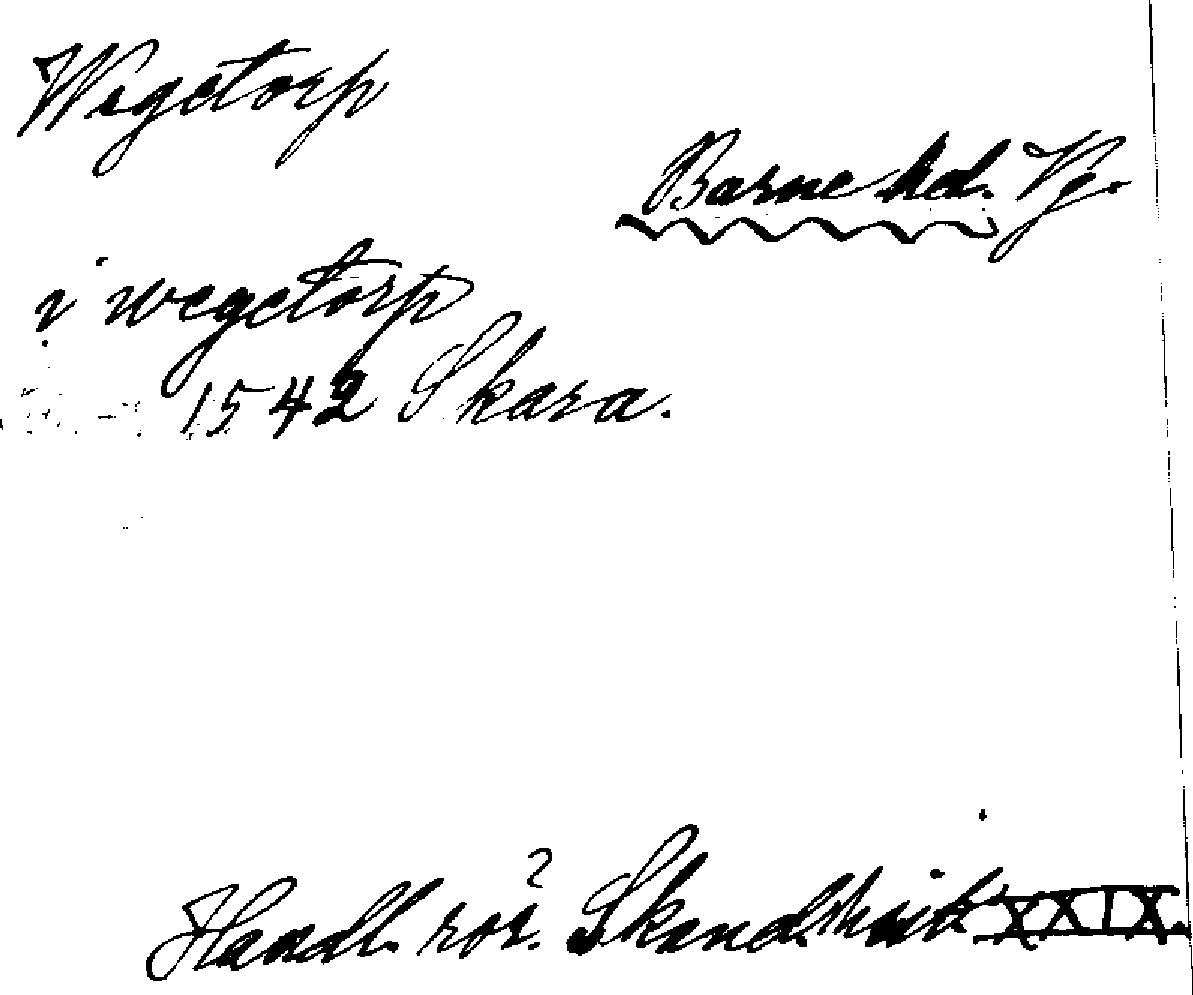 Wegetorp
Barne hd. Vg.
i wegetorp
1542 Skara.
Handl. rör. Skand. hist. XXIX.